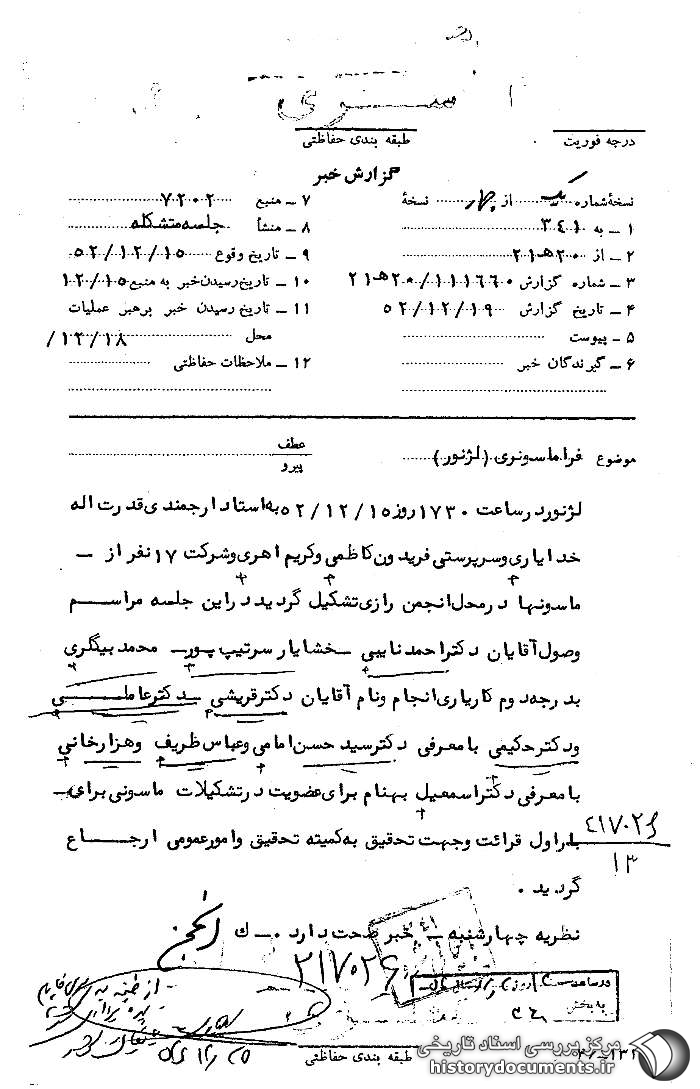 سری
درجه فوریت طبقه بندی حفاظتی
گزارش خبر
نسخهٔ شماره یک از چهار نسخهٔ
۱ ــ به ۳۴۱
۲ ــ از ۲۰ه۲۱
۳ ــ شماره گزارش ۱۱۱۶۶۰/۲۰ه۲۱
۴ ــ تاریخ گزارش ۵۲/۱۲/۱۹
۵ ــ پیوست
۶ ــ گیرندگان خبر
۷ ــ منبع ۷۲۰۲
۸ ــ منشأ جلسه متشکله
۹ ــ تاریخ وقوع ۵۲/۱۲/۱۵
۱۰ ــ تاریخ رسیدن خبر به منبع ۱۲/۱۵
۱۱ ــ تاریخ رسیدن خبر برهبر عملیات
محل ۱۲/۱۸/
۱۲ ــ ملاحظات حفاظتی
موضوع فراماسونری (لژنور)
عطف
پیرو
لژنور در ساعت ۱۷۳۰ روز ۵۲/۱۲/۱۵ به استاد ارجمندی قدرت اله
خدایاری و سرپرستی فریدون کاظمی و کریم اهری و شرکت ۱۷ نفر از ــ
ماسونها در محل انجمن رازی تشکیل گردید در این جلسه مراسم
وصول آقایان دکتر احمد نایبی ــ خشایار سرتیپ پور ــ محمد بیگلری
بدرجه دوم کاریاری انجام و نام آقایان دکتر قریشی ــ دکتر عاملی
و دکتر حکیمی با معرفی دکتر سید حسن امامی و عباس ظریف و هزارخانی
با معرفی دکتر اسمعیل بهنام برای عضویت در تشکیلات ماسونی برای ــ
بار اول قرائت و جهت تحقیق به کمیته تحقیق و امور عمومی ارجاع
گردید .
۴۱۷۰۲۶
۱۳
نظریه چهارشنبه ــ خبر صحت دارد . ــ ك
۲۱۷۰۲۶
در ساعت روز
به بخش
طبقه بندی حفاظتی
مرکز بررسی اسناد تاریخی
historydocuments.ir